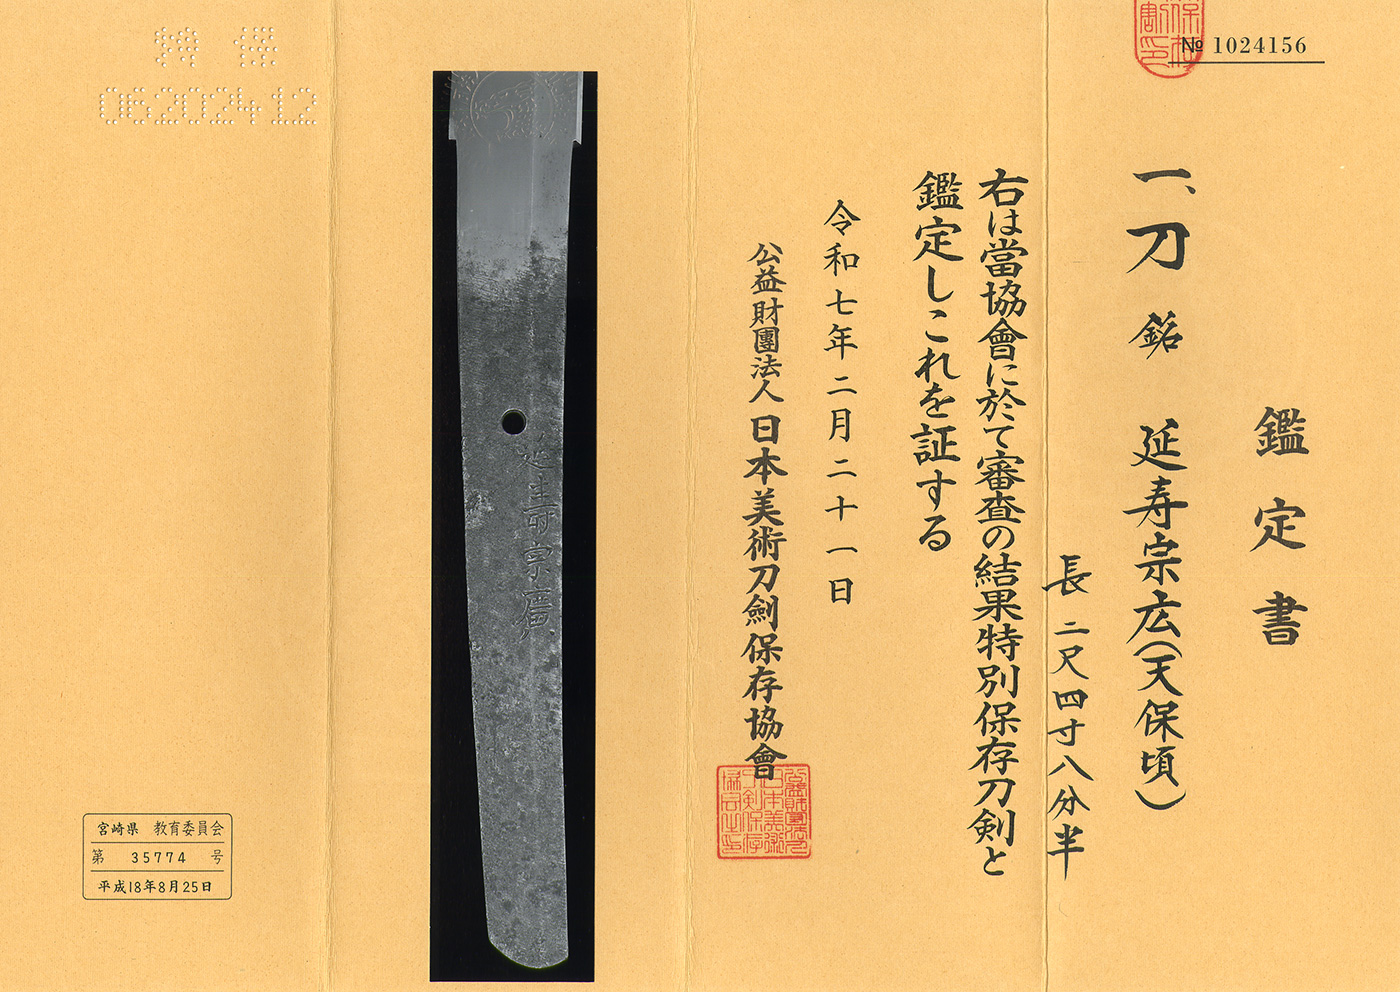 № 1024156
鑑定書
一、刀 銘 延寿宗広(天保頃)
長 二尺四寸八分半
右は當協會に於て審査の結果特別保存刀剣と
鑑定しこれを証する
令和七年二月二十一日
公益財團法人 日本美術刀劍保存協會
延壽宗廣
特保
06202412
宮崎県 教育委員会
第 35774 号
平成18年8月25日